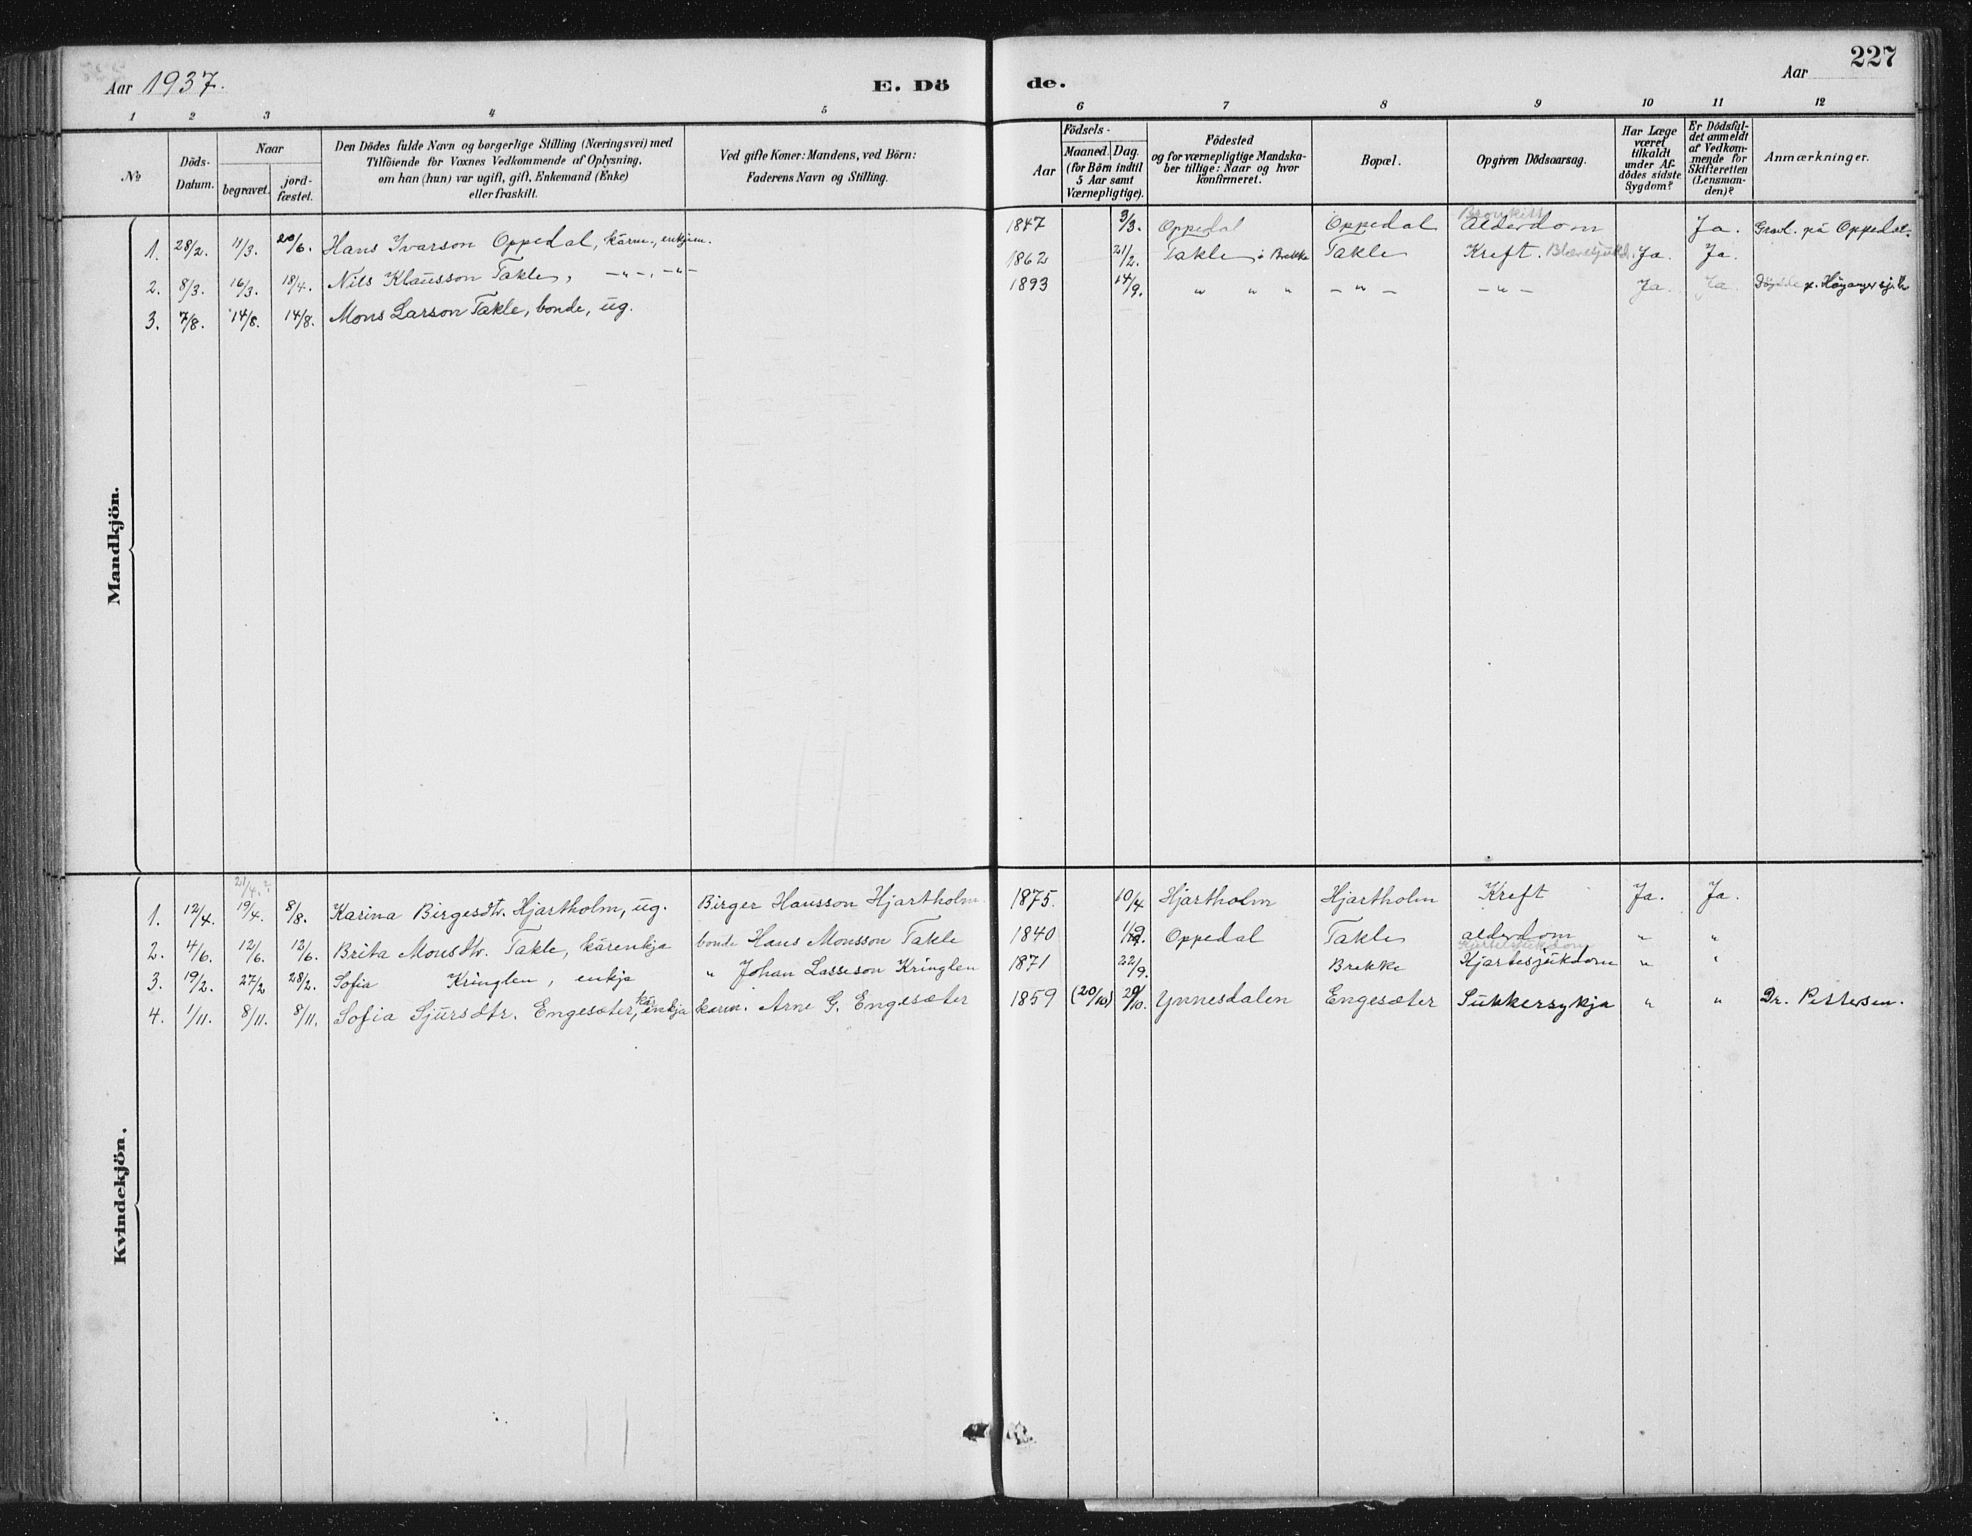 Aar 1937. E. Dö de. Aar 227
1 2 3 4 5 6 7 8 9 10 11 12
№
Döds-Datum.
Naar
begravet.
jordfæstet.
Den Dödes fulde Navn og borgerlige Stilling (Næringsvei) med
Tilföiende for Voxnes Vedkommende af Oplysning,
om han (hun) var ugift, gift, Enkemand (Enke)
eller fraskilt.
Ved gifte Koner: Mandens, ved Börn:
Faderens Navn og Stilling.
Aar
Födsels-
Maaned. Dag.
(for Börn indtil
5 Aar samt
Værnepligtige).
Födested
og for værnepligtige Mandska-
ber tillige: Naar og hvor
konfirmeret.
Bopæl.
Opgiven Dödsaarsag.
Har Læge
været
tilkaldt
under Af-
dödes sidste
Sygdom?
Er Dödsfal-
det anmeldt
af Vedkom-
mende for
Skifteretten
(Lensman-
den)?
Anmærkninger.
Mandkjön.
1. 28/2. 11/3. 20/6. Hans Ivarson Oppedal, kårm., enkjem. 1847 3/3. Oppedal Oppedal Bronkitt Alderdom Ja. Gravl. på Oppedal.
2. 8/3. 16/3. 18/4. Nils Klausson Takle, -"-, -"- 1862 21/2. Takle i Brekke Takle Kreft. Blæresjukd. Ja. Ja.
3. 7/8. 14/8. 14/8. Mons Larson Takle, bonde, ug. 1893 14/9. " " " -"- -"- Ja. Ja. Döydde p. Höyanger sj.h.
Kvindekjön.
21/4.?
1. 12/4. 19/4. 8/8. Karina Birgesdtr. Hjartholm, ug. Birger Hansson Hjartholm 1875. 10/4 Hjartholm Hjartholm Kreft Ja. Ja.
2. 4/6. 12/6. 12/6. Brita Monsdtr. Takle, kårenkja bonde Hans Monsson Takle 1840 Oppedal Takle alderdom " "
3. 19/2. 27/2 28/2. Sofia Kringlen, enkja " Johan Lasseson Kringlen 1871 22/9. Brekke Hjartesjukdom " "
4. 1/11. 8/11. 8/11. Sofia Sjursdtr. Engesæter, kår enkja kårm. Arne G. Engesæter 1859 (20/10) 20/10. Ynnesdalen Engesæter Sukkersykja " " Dr. Pettersen.